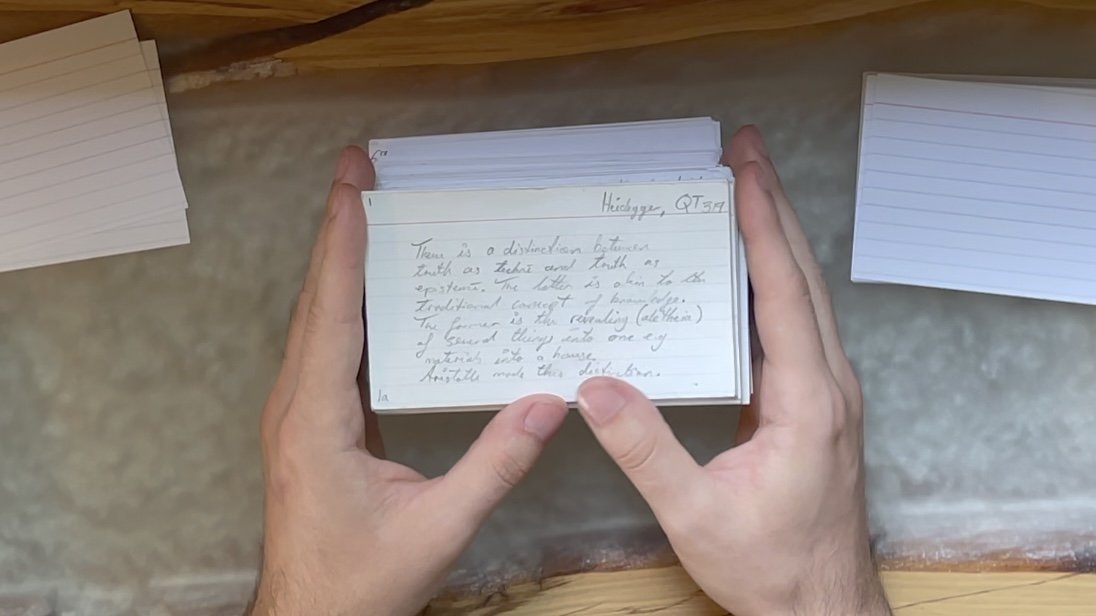 1
Heidegger, QT 319
There is a distinction between
truth as technē and truth as
epistemē. The latter is akin to the
traditional concept of knowledge.
The former is the revealing (aletheia)
of several things into one e.g
materials into a house.
Aristotle made this distinction.
1a